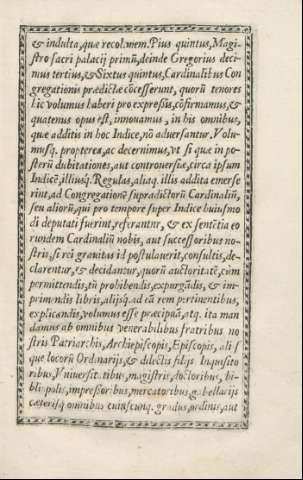 & indulta, quæ recol. mem. Pius quintus, Magi-
stro sacri palacij primũ, deinde Gregorius deci-
mus tertius, & Sixtus quintus, Cardinalibus Con
gregationis prædictæ cõcesserunt, quorũ tenores
hic volumus haberi pro expressis, cõfirmamus, &
quatenus opus est, innouamus, in his omnibus,
quæ additis in hoc Indice, nõ aduersantur. Volu-
musq. propterea, ac decernimus, vt si quæ in po-
sterũ dubitationes, aut controuersiæ, circa ipsum
Indicẽ, illiusq. Regulas, aliaq. illis addita emerse
rint, ad Congregationẽ supradictorũ Cardinaliũ,
seu aliorũ, qui pro tempore super Indice huiusmo
di deputati fuerint, referantur, & ex sentẽtia eo
rundem Cardinaliũ nobis, aut successoribus no-
stris, si rei grauitas id postulauerit, consultis, de-
clarentur, & decidantur, quorũ auctoritatẽ, cũm
permittendis, tũ prohibendis, expurgãdis, & im-
primendis libris, alijsq. ad eã rem pertinentibus,
explicandis, volumus esse præcipuã, atq. ita man
damus ab omnibus venerabilibus fratribus no
stris Patriarchis, Archiepiscopis, Episcopis, alijs
que locorũ Ordinarijs, & dilectis filijs Inquisito
ribus, Vniuersitatibus, magistris, doctoribus, bi-
bliopolis, impressoribus, mercatoribus, gabellarijs
cæterisq. omnibus cuiuscunq. gradus, ordinis, aut